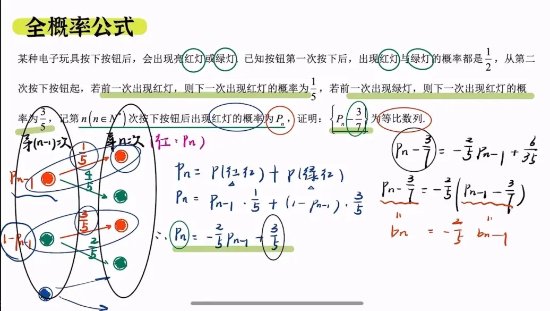 全概率公式
某种电子玩具按下按钮后，会出现亮红灯或绿灯. 已知按钮第一次按下后，出现红灯与绿灯的概率都是1/2，从第二
次按下按钮起，若前一次出现红灯，则下一次出现红灯的概率为1/5，若前一次出现绿灯，则下一次出现红灯的概
率为3/5，记第n(n∈N*)次按下按钮后出现红灯的概率为Pₙ，证明：{Pₙ-3/7}为等比数列.
第(n-1)次 第n次 (红：Pₙ)
1/5
Pₙ₋₁ 4/5
1-Pₙ₋₁ 3/5
2/5
Pₙ = P(红红) + P(绿红)
Pₙ = Pₙ₋₁ · 1/5 + (1-Pₙ₋₁) · 3/5
∴ Pₙ = -2/5 Pₙ₋₁ + 3/5
Pₙ - 3/7 = -2/5 Pₙ₋₁ + 6/35
Pₙ - 3/7 = -2/5 (Pₙ₋₁ - 3/7)
bₙ = -2/5 bₙ₋₁